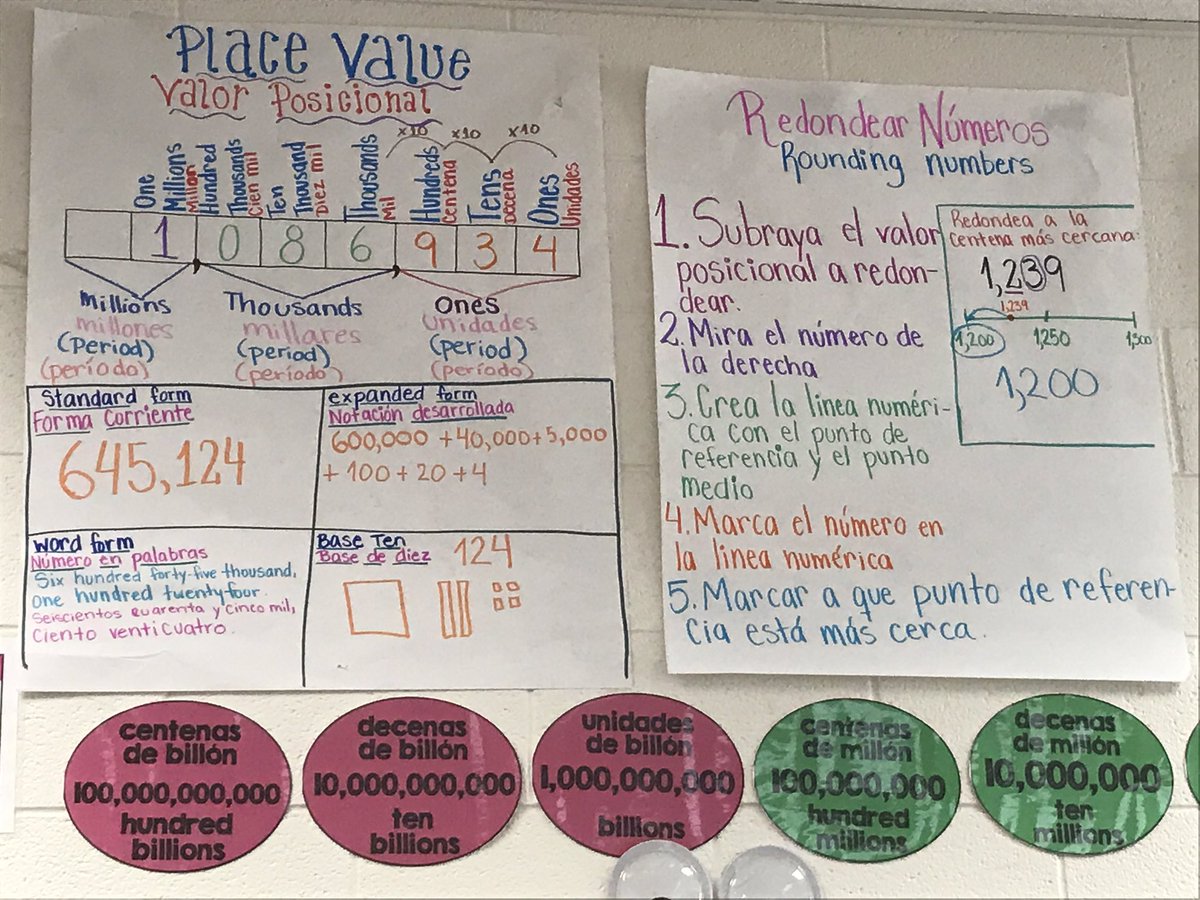 PLACE VALUE
Valor Posicional
x10 x10 x10
One Millions
Millón
Hundred Thousands
Cien mil
Ten Thousand
Diez mil
Thousands
Mil
Hundreds
Centena
Tens
Decena
Ones
Unidades
1 , 0 8 6 , 9 3 4
Millions
millones
(period)
(período)
Thousands
millares
(period)
(período)
Ones
Unidades
(period)
(período)
Standard form
Forma Corriente
645,124
expanded form
Notación desarrollada
600,000 + 40,000 + 5,000
+ 100 + 20 + 4
Word form
Número en palabras
Six hundred forty-five thousand,
one hundred twenty-four.
Seiscientos cuarenta y cinco mil,
Ciento venticuatro.
Base Ten
Base de diez
124
Redondear Números
Rounding numbers
1. Subraya el valor
posicional a redon-
dear.
2. Mira el número de
la derecha
3. Crea la linea numéri-
ca con el punto de
referencia y el punto
medio
4. Marca el número en
la linea numérica
5. Marcar a que punto de referen-
cia está más cerca.
Redondea a la
centena más cercana:
1,239
1,239
1,200 1,250 1,300
1,200
centenas
de billón
100,000,000,000
hundred
billions
decenas
de billón
10,000,000,000
ten
billions
unidades
de billón
1,000,000,000
billions
centenas
de millón
100,000,000
hundred
millions
decenas
de millón
10,000,000
ten
millions